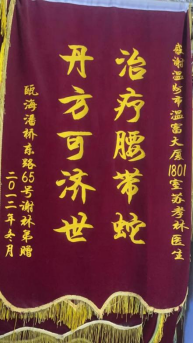 感谢温州市温富大厦1801
室苏孝林医生
治疗腰带蛇
丹方可济世
瓯海潘桥东路65号谢林弟赠
二〇一二年冬月